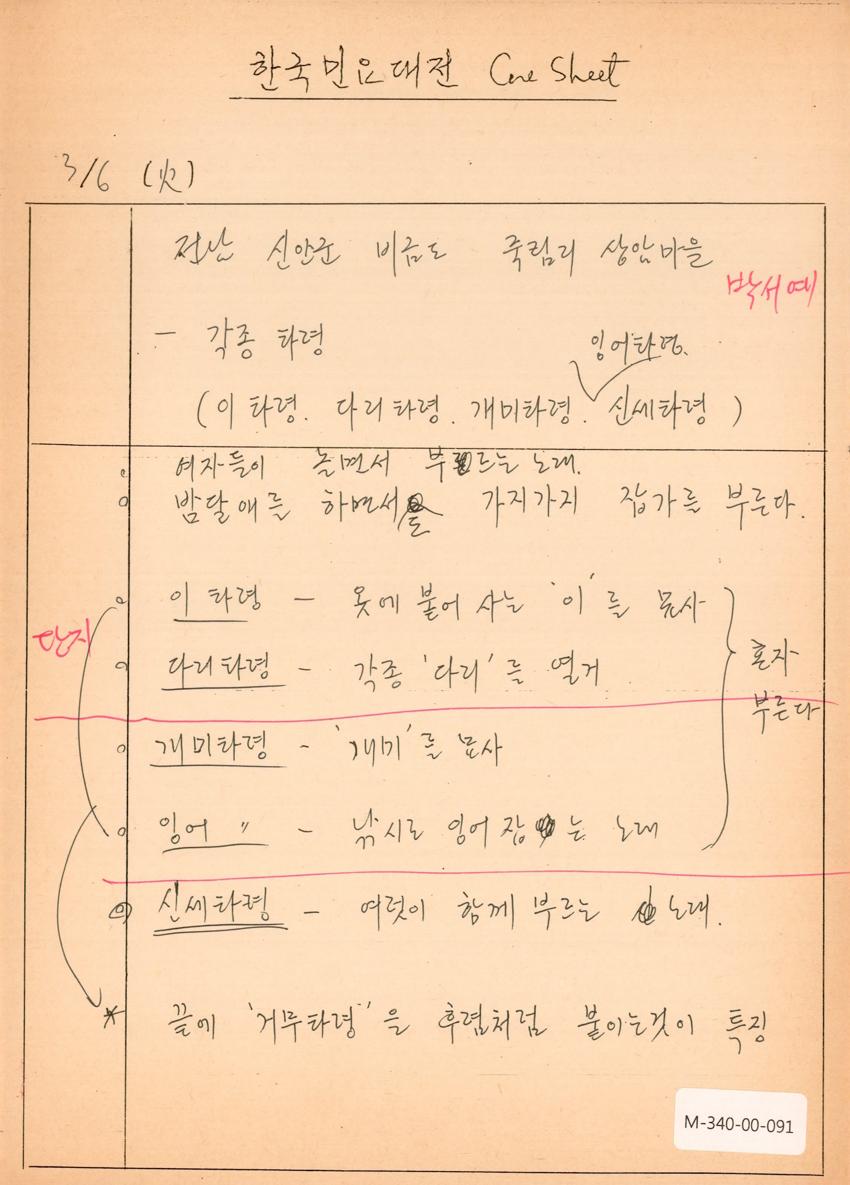 한국민요대전 Cue Sheet
3/6 (火)
전남 신안군 비금도 죽림리 상암마을
박서예
- 각종 타령
잉어타령.
(이 타령. 다리타령. 개미타령. 신세타령)
여자들이 놀면서 부르는 노래.
밤달애를 하면서들 가지가지 잡가를 부른다.
이 타령 - 옷에 붙어 사는 '이'를 묘사
단지
다리타령 - 각종 '다리'를 열거
혼자
부른다
개미타령 - '개미'를 묘사
잉어 〃 - 낚시로 잉어 잡는 노래
신세타령 - 여럿이 함께 부르는 노래.
* 끝에 '거무타령'을 후렴처럼 붙이는것이 특징
M-340-00-091